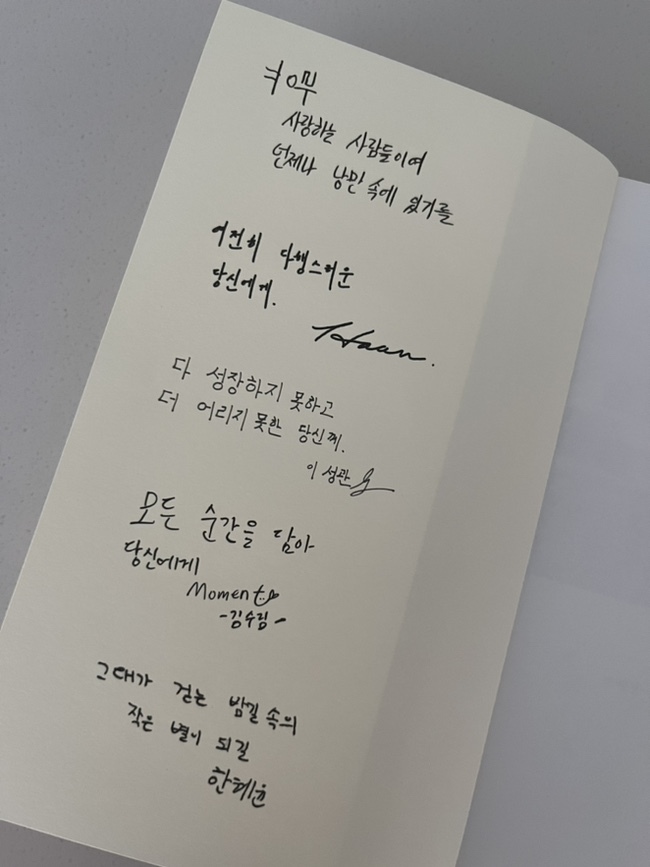 사랑하는 사람들이여
언제나 낭만 속에 있기를
여전히 다행스러운
당신에게.
Haan.
다 성장하지 못하고
더 어리지 못한 당신께.
이성관
모든 순간을 담아
당신에게
Moment
-김수림-
그대가 걷는 밤길 속의
작은 별이 되길
한혜윤